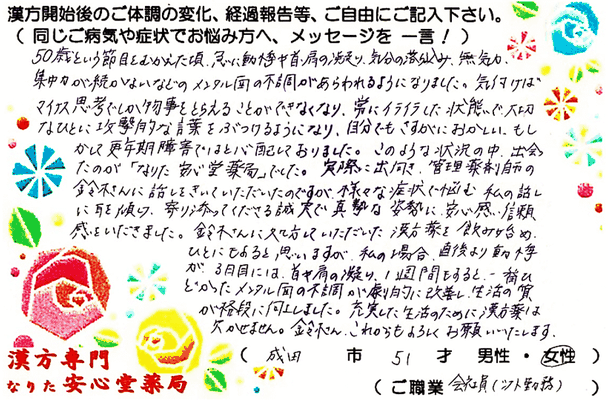 漢方開始後のご体調の変化、経過報告等、ご自由にご記入下さい。
（同じご病気や症状でお悩み方へ、メッセージを 一言！）
50歳という節目をむかえた頃、急に動悸や首・肩の凝り、気分の落込み、無気力、
集中力が続かないなどのメンタル面の不調があらわれるようになりました。気付けば
マイナス思考でしか物事をとらえることができなくなり、常にイライラした状態で大切
なひとに攻撃的な言葉をぶつけるようになり、自分でもさすがにおかしい、もし
かして更年期障害ではと心配しておりました。このような状況の中、出会っ
たのが「なりた安心堂薬局」でした。実際に出向き、管理薬剤師の
鈴木さんに話しをきいていただいたのですが、様々な症状で悩む私の話し
に耳を傾け、寄り添ってくださる誠実で真摯な姿勢に、安心感、信頼
感をいだきました。鈴木さんに選んでいただいた漢方薬を飲み始め、
ひとにもよると思いますが、私の場合、直後より動悸
が、3日目には、首や肩の凝り、1週間もすると、一番ひ
どかったメンタル面の不調が劇的に改善し、生活の質
が格段に向上しました。充実した生活のために漢方薬は
欠かせません。鈴木さん、これからもよろしくお願いいたします。
漢方専門
なりた安心堂薬局
（ 成田 市 51 才 男性・女性）
（ご職業 会社員（シフト勤務）